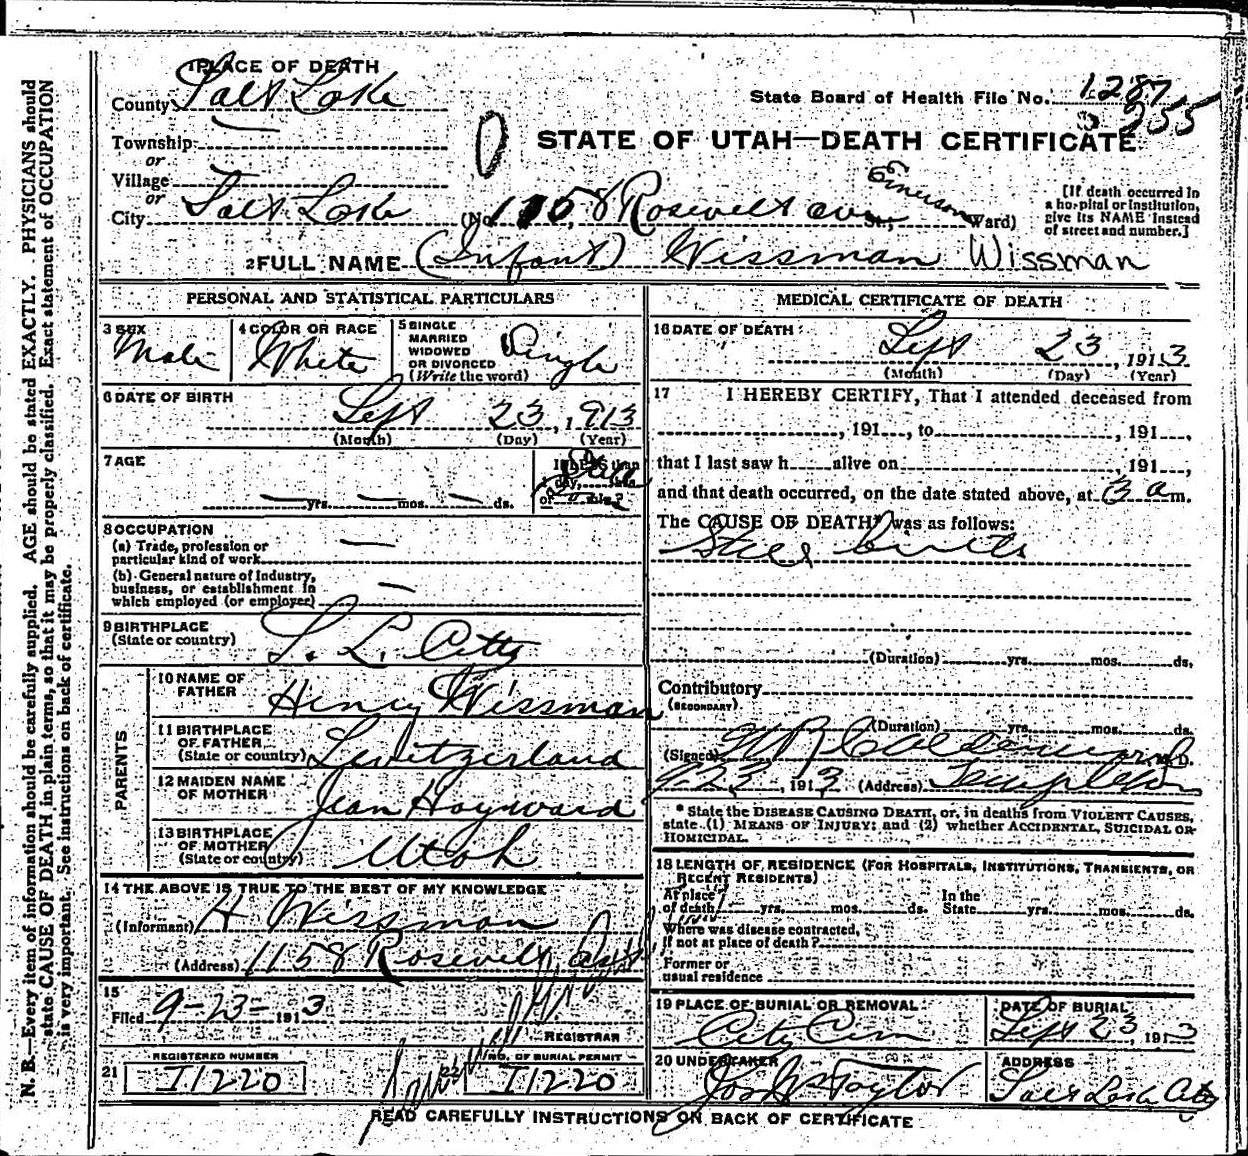 N. B.—Every item of information should be carefully supplied. AGE should be stated EXACTLY. PHYSICIANS should
state CAUSE OF DEATH in plain terms, so that it may be properly classified. Exact statement of OCCUPATION
is very important. See instructions on back of certificate.
1 PLACE OF DEATH
County Salt Lake
State Board of Health File No. 1287
255
Township
or
Village
or
STATE OF UTAH—DEATH CERTIFICATE
City Salt Lake (No. 1158 Rosevelt ave St., Emerson Ward)
[If death occurred in
a hospital or institution,
give its NAME instead
of street and number.]
2 FULL NAME (Infant) Wissman Wissman
PERSONAL AND STATISTICAL PARTICULARS
3 SEX
Male
4 COLOR OR RACE
White
5 SINGLE
MARRIED
WIDOWED
OR DIVORCED
(Write the word)
Single
6 DATE OF BIRTH
Sept 23, 1913
(Month) (Day) (Year)
7 AGE
— yrs. — mos. — ds.
If LESS than
1 day,
or
8 OCCUPATION
(a) Trade, profession or
particular kind of work —
(b) General nature of Industry,
business, or establishment in
which employed (or employer) —
9 BIRTHPLACE
(State or country) S. L. City
PARENTS
10 NAME OF
FATHER Henry Wissman
11 BIRTHPLACE
OF FATHER
(State or country) Switzerland
12 MAIDEN NAME
OF MOTHER Jean Hayward
13 BIRTHPLACE
OF MOTHER
(State or country) Utah
14 THE ABOVE IS TRUE TO THE BEST OF MY KNOWLEDGE
(Informant) H Wissman
(Address) 1158 Rosevelt
15
Filed 9-23- 1913
REGISTRAR
21
REGISTERED NUMBER
I1220
22
NO. OF BURIAL PERMIT
I1220
MEDICAL CERTIFICATE OF DEATH
16 DATE OF DEATH
Sept 23, 1913
(Month) (Day) (Year)
17 I HEREBY CERTIFY, That I attended deceased from
, 191 , to , 191 ,
that I last saw h alive on , 191 ,
and that death occurred, on the date stated above, at 3 a m.
The CAUSE OF DEATH* was as follows:
Still birth
(Duration) yrs. mos. ds.
Contributory
(SECONDARY)
(Duration) yrs. mos. ds.
(Signed) M.D.
9 23, 1913 (Address) Templeton
* State the DISEASE CAUSING DEATH, or, in deaths from VIOLENT CAUSES,
state (1) MEANS OF INJURY; and (2) whether ACCIDENTAL, SUICIDAL OR
HOMICIDAL.
18 LENGTH OF RESIDENCE (FOR HOSPITALS, INSTITUTIONS, TRANSIENTS, OR
RECENT RESIDENTS)
At place
of death yrs. mos. ds.
In the
State yrs. mos. ds.
Where was disease contracted,
if not at place of death?
Former or
usual residence
19 PLACE OF BURIAL OR REMOVAL
City Cem
DATE OF BURIAL
Sept 23, 1913
20 UNDERTAKER
Jos Wm Taylor
ADDRESS
Salt Lake City
READ CAREFULLY INSTRUCTIONS ON BACK OF CERTIFICATE